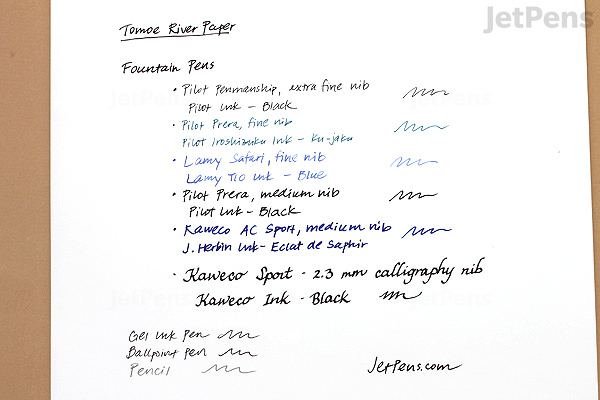 JetPens
Tomoe River Paper
Fountain Pens
• Pilot Penmanship, extra fine nib
Pilot Ink - Black
• Pilot Prera, fine nib
Pilot Iroshizuku Ink - Ku-jaku
• Lamy Safari, fine nib
Lamy T10 Ink - Blue
• Pilot Prera, medium nib
Pilot Ink - Black
• Kaweco AC Sport, medium nib
J. Herbin Ink - Eclat de Saphir
• Kaweco Sport - 2.3 mm calligraphy nib
Kaweco Ink - Black
Gel Ink Pen
Ballpoint Pen
Pencil
JetPens.com